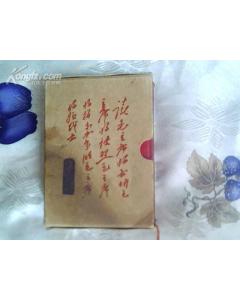 Kongfz.com
读毛主席的书听毛
主席的话照毛主席
的指示办事做毛主席
的好战士